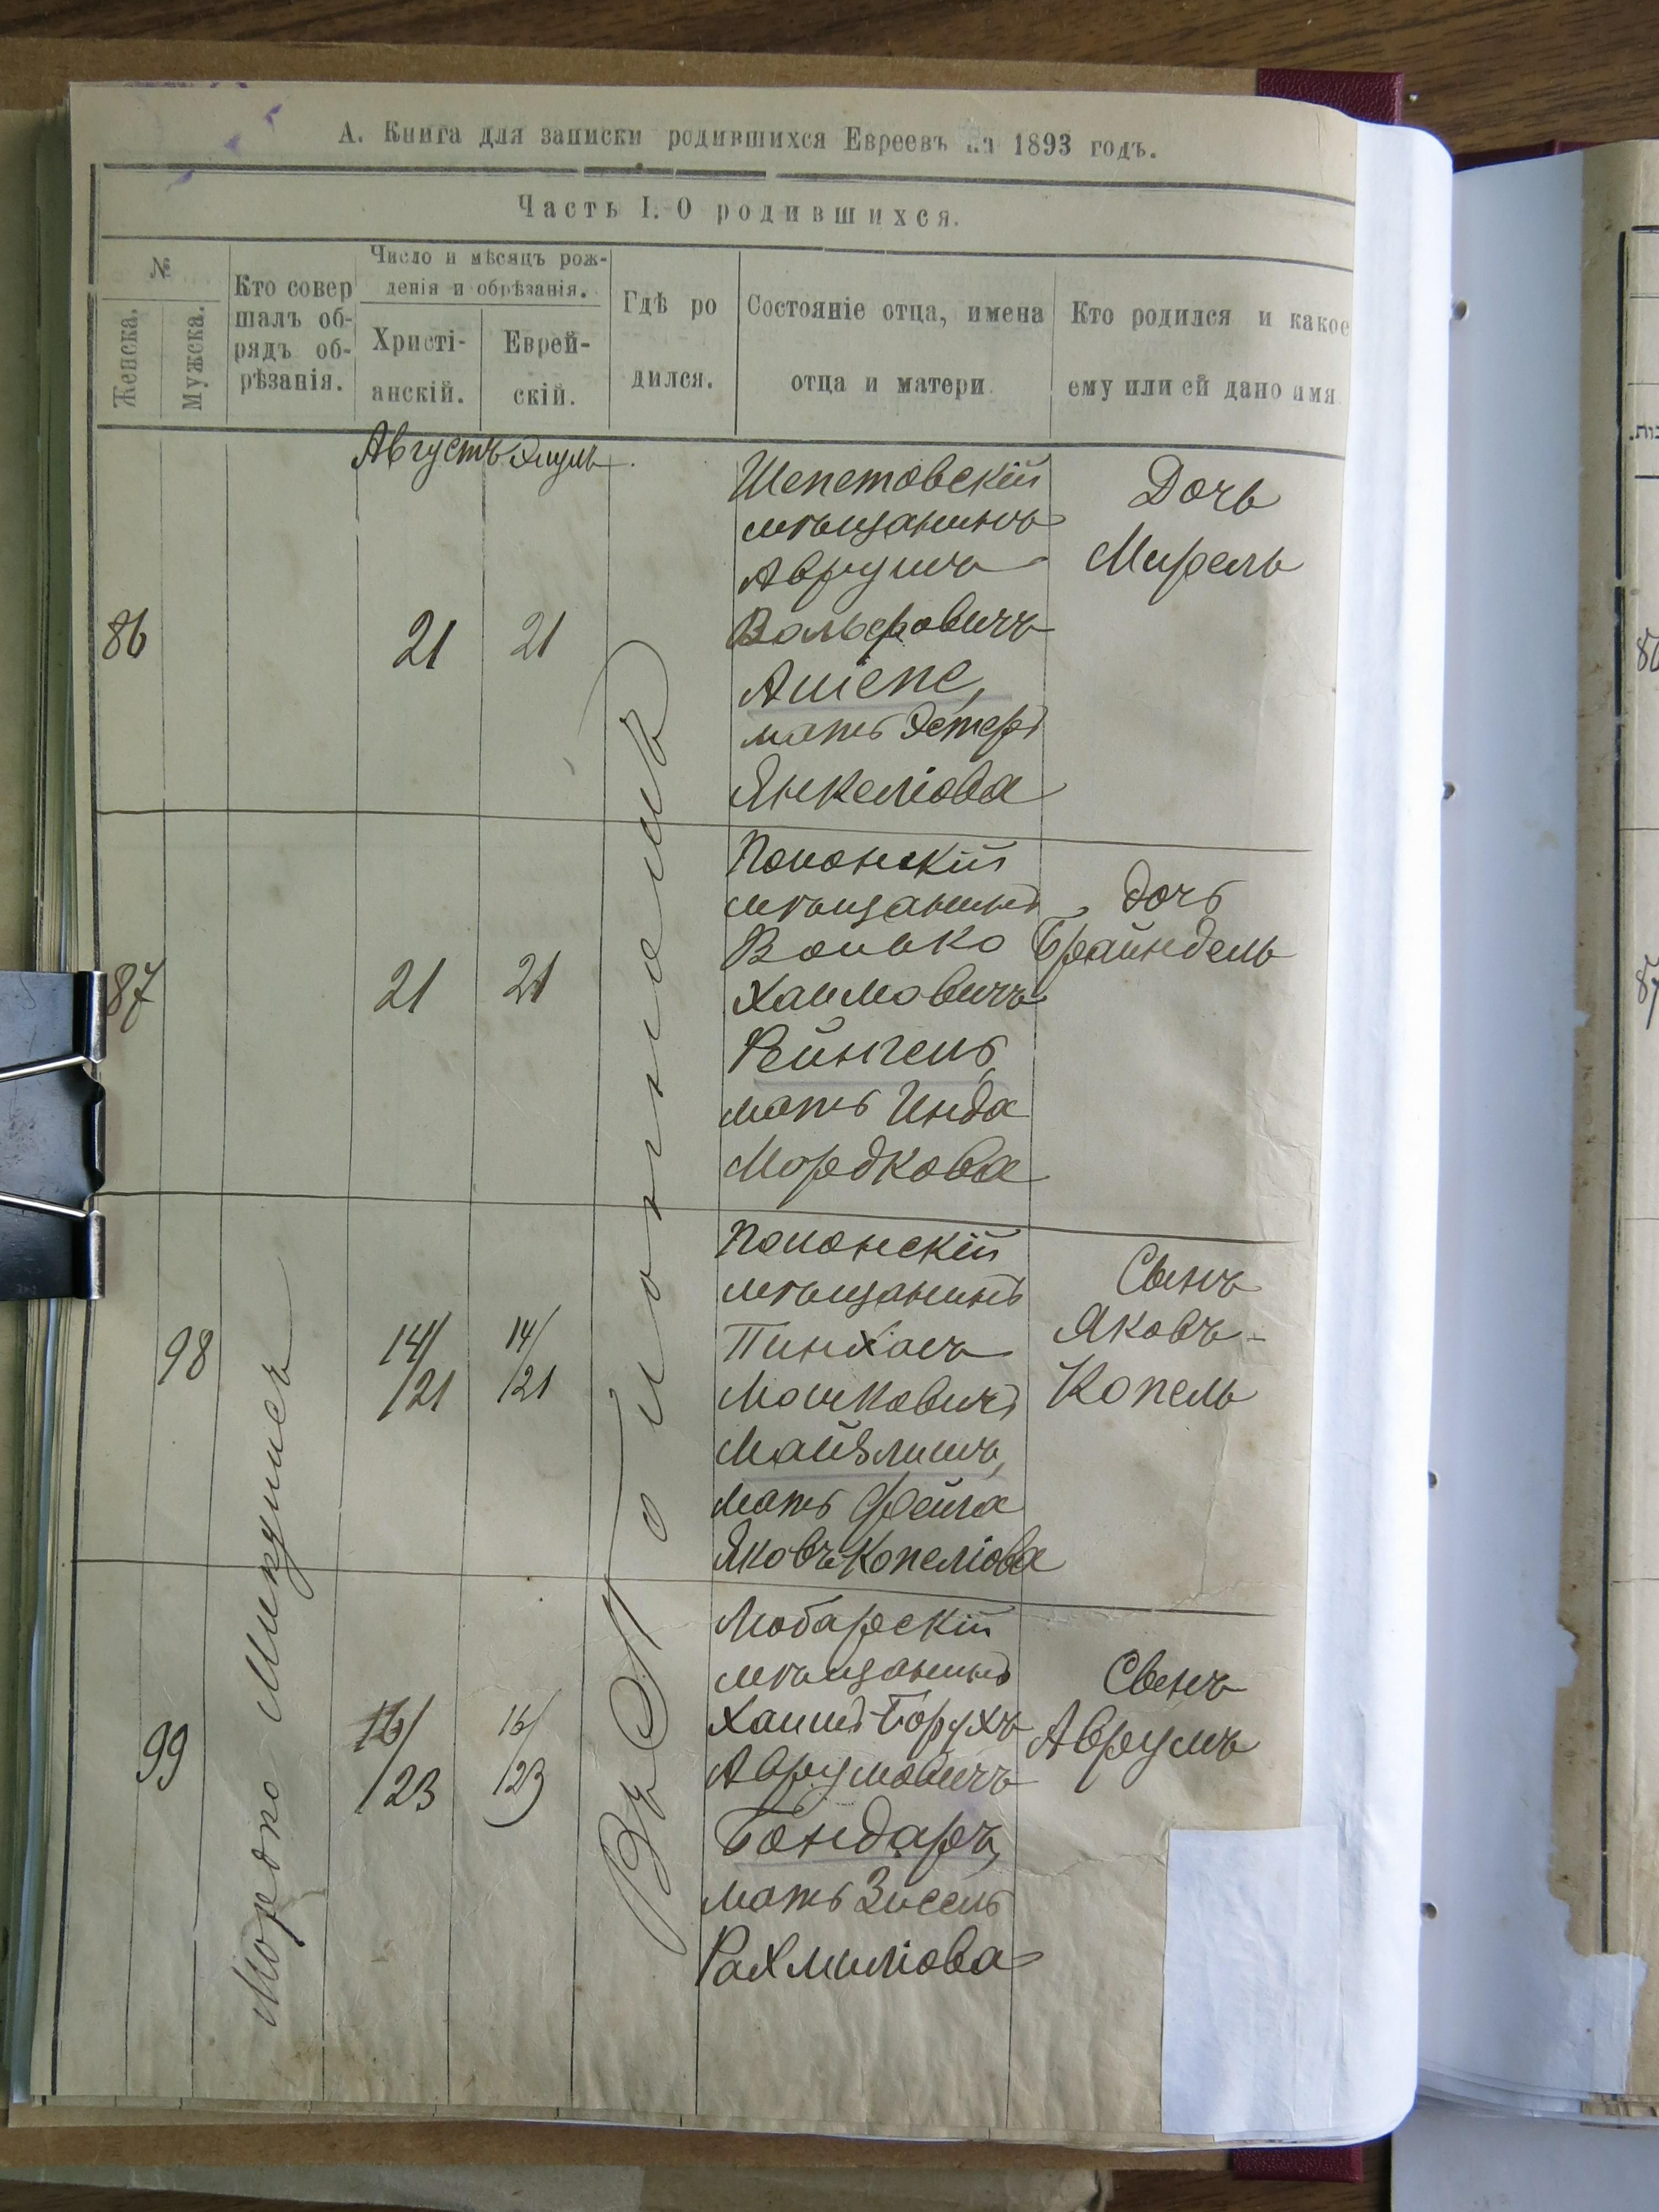 А. Книга для записки родившихся Евреевъ на 1893 годъ.
Часть I. О родившихся.
№
Женска.
Мужска.
Кто совер
шалъ об-
рядъ об-
рѣзанія.
Число и мѣсяцъ рож-
денія и обрѣзанія.
Христі-
анскій.
Еврей-
скій.
Гдѣ ро
дился.
Состояніе отца, имена
отца и матери
Кто родился и какое
ему или ей дано имя
Августъ Элулъ
86
21
21
Шепетовскій
мѣщанинъ
Аврумъ
Вольфовичъ
мать Эстеръ
Янкеліова
Дочь
Мирель
87
21
21
Полонскій
мѣщанинъ
Волько
Хаимовичъ
Рейнгель,
мать Инда
Мордкова
дочь
Брайндель
98
14/
/21
14/
/21
Полонскій
мѣщанинъ
Пинхасъ
Мошковичъ
мать Фейга
Яковъ Копеліова
Сынъ
Яковъ-
Копель
99
16/
/23
16/
/23
Любарскій
мѣщанинъ
Хаимъ Борухъ
Аврумовичъ
Бондаръ,
мать Зисель
Рахмиліова
Сынъ
Аврумъ
Мордко
Въ Полонномъ